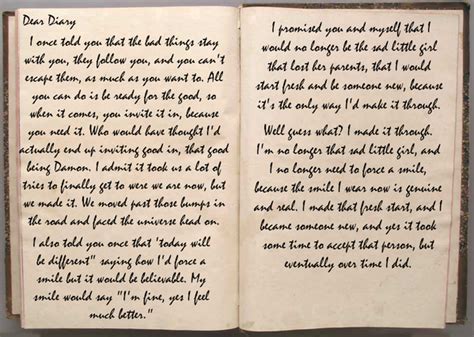 Dear Diary
I once told you that the bad things stay
with you, they follow you, and you can't
escape them, as much as you want to. All
you can do is be ready for the good, so
when it comes, you invite it in, because
you need it. Who would have thought I'd
actually end up inviting good in, that good
being Damon. I admit it took us a lot of
tries to finally get to were we are now, but
we made it. We moved past those bumps in
the road and faced the universe head on.
I also told you once that 'today will
be different" saying how I'd force a
smile but it would be believable. My
smile would say "I'm fine, yes I feel
much better."
I promised you and myself that I
would no longer be the sad little girl
that lost her parents, that I would
start fresh and be someone new, because
it's the only way I'd make it through.
Well guess what? I made it through.
I'm no longer that sad little girl, and
I no longer need to force a smile,
because the smile I wear now is genuine
and real. I made that fresh start, and I
became someone new, and yes it took
some time to accept that person, but
eventually over time I did.